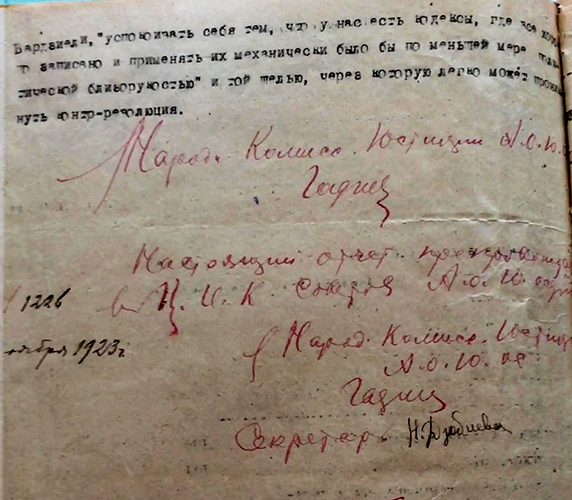 Вардзиели, "успокоивать себя тем, что у нас есть кодексы, где все
записано и применять их механически было бы по меньшей мере
тической близорукостью" и той щелью, через которую легко может
нуть контр-революция.
Народ. Комисс. Юстиции А.О.Ю.О.
Гадиев
Настоящий отчет
в Ц.И.К. А.О.Ю.
1226
Народ. Комисс.
ября 1923 г.
А.О.Ю.Ос
Гадиев
Секретарь